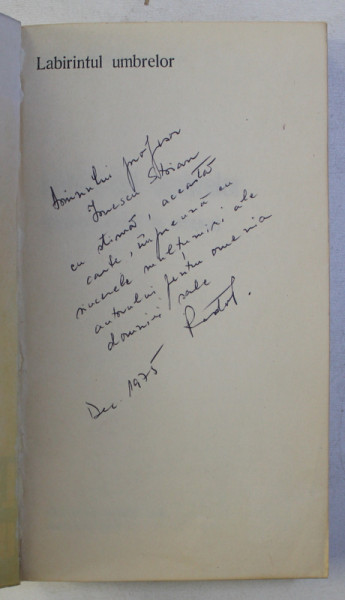 Labirintul umbrelor
Domnului profesor
Ionescu Stoian
cu stimă, această
carte, împreună cu
sincerele mulțumiri ale
autorului pentru omenia
domniei sale
Dec. 1975